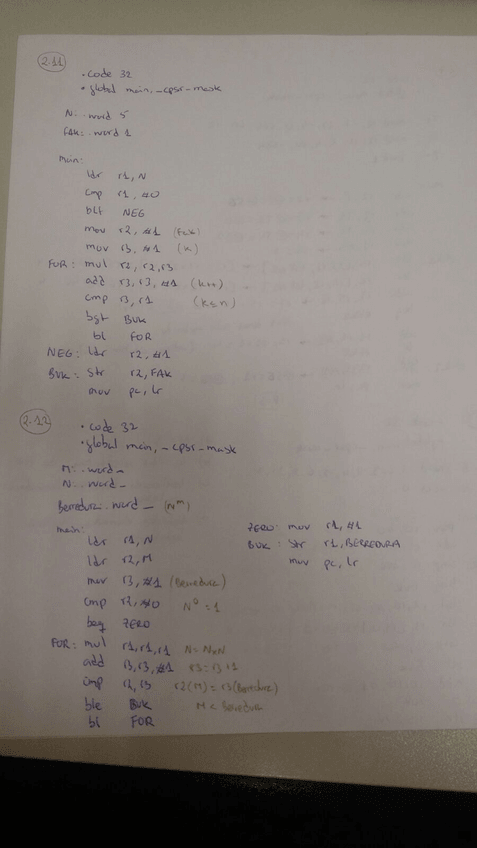 2.11
.code 32
.global main, _cpsr_mask
N: .word 5
FAK: .word 1
main:
ldr r1, N
cmp r1, #0
blt NEG
mov r2, #1 (Fak)
mov r3, #1 (k)
FOR: mul r2, r2, r3
add r3, r3, #1 (k++)
cmp r3, r1 (k≤n)
bgt BUK
bl FOR
NEG: ldr r2, #1
BUK: str r2, FAK
mov pc, lr
2.12
.code 32
.global main, _cpsr_mask
M: .word _
N: .word _
Berredura: .word _ (N^m)
main:
ldr r1, N
ldr r2, M
mov r3, #1 (Berredura)
cmp r2, #0 N^0 = 1
beq ZERO
FOR: mul r1, r1, r1 N=NxN
add r3, r3, #1 r3=r3+1
cmp r2, r3 r2(M)=r3(Berredura)
ble BUK M < Berredura
bl FOR
ZERO: mov r1, #1
BUK: str r1, BERREDURA
mov pc, lr